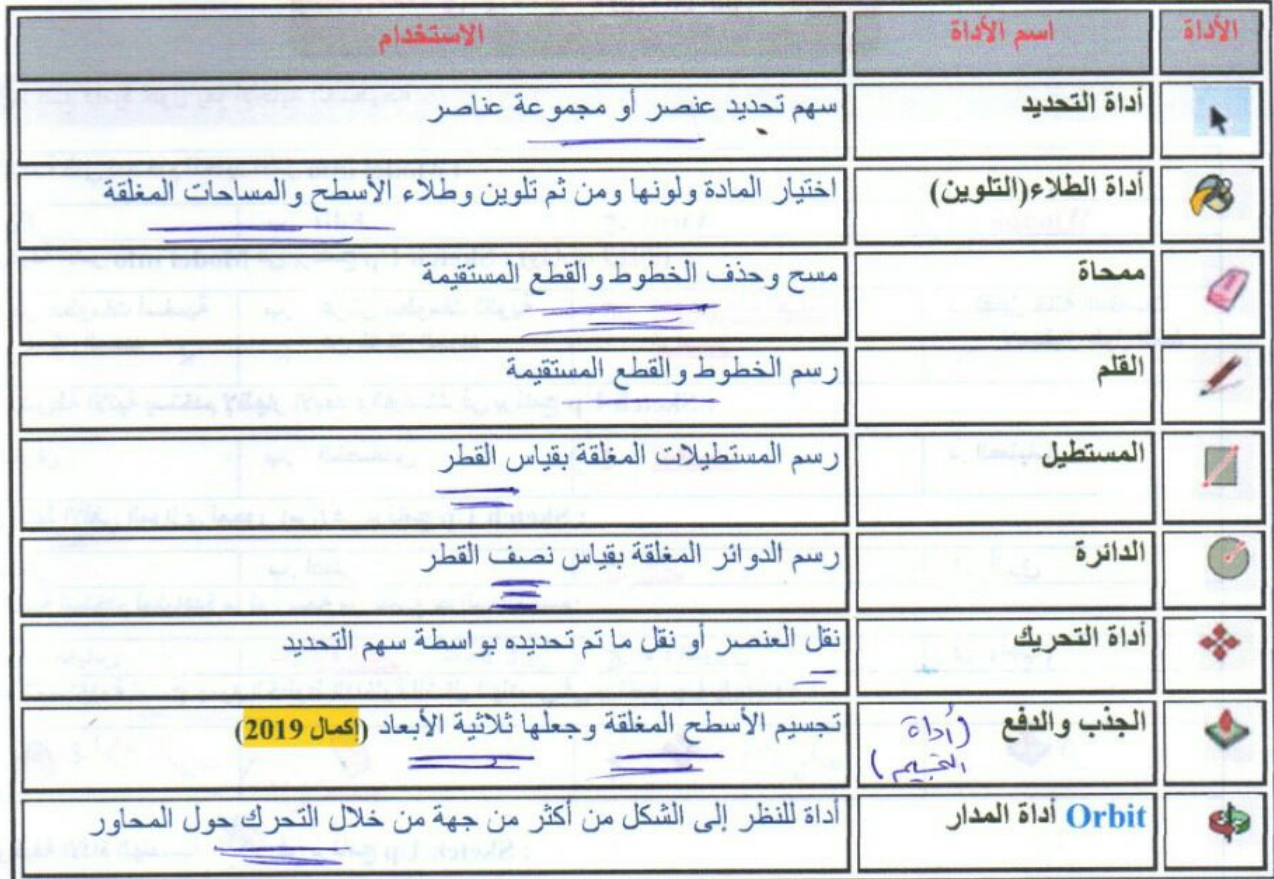 الأداة اسم الأداة الاستخدام
أداة التحديد سهم تحديد عنصر أو مجموعة عناصر
أداة الطلاء(التلوين) اختيار المادة ولونها ومن ثم تلوين وطلاء الأسطح والمساحات المغلقة
ممحاة مسح وحذف الخطوط والقطع المستقيمة
القلم رسم الخطوط والقطع المستقيمة
المستطيل رسم المستطيلات المغلقة بقياس القطر
الدائرة رسم الدوائر المغلقة بقياس نصف القطر
أداة التحريك نقل العنصر أو نقل ما تم تحديده بواسطة سهم التحديد
الجذب والدفع (أداة التجسيم) تجسيم الأسطح المغلقة وجعلها ثلاثية الأبعاد (إكمال 2019)
Orbit أداة المدار أداة للنظر إلى الشكل من أكثر من جهة من خلال التحرك حول المحاور